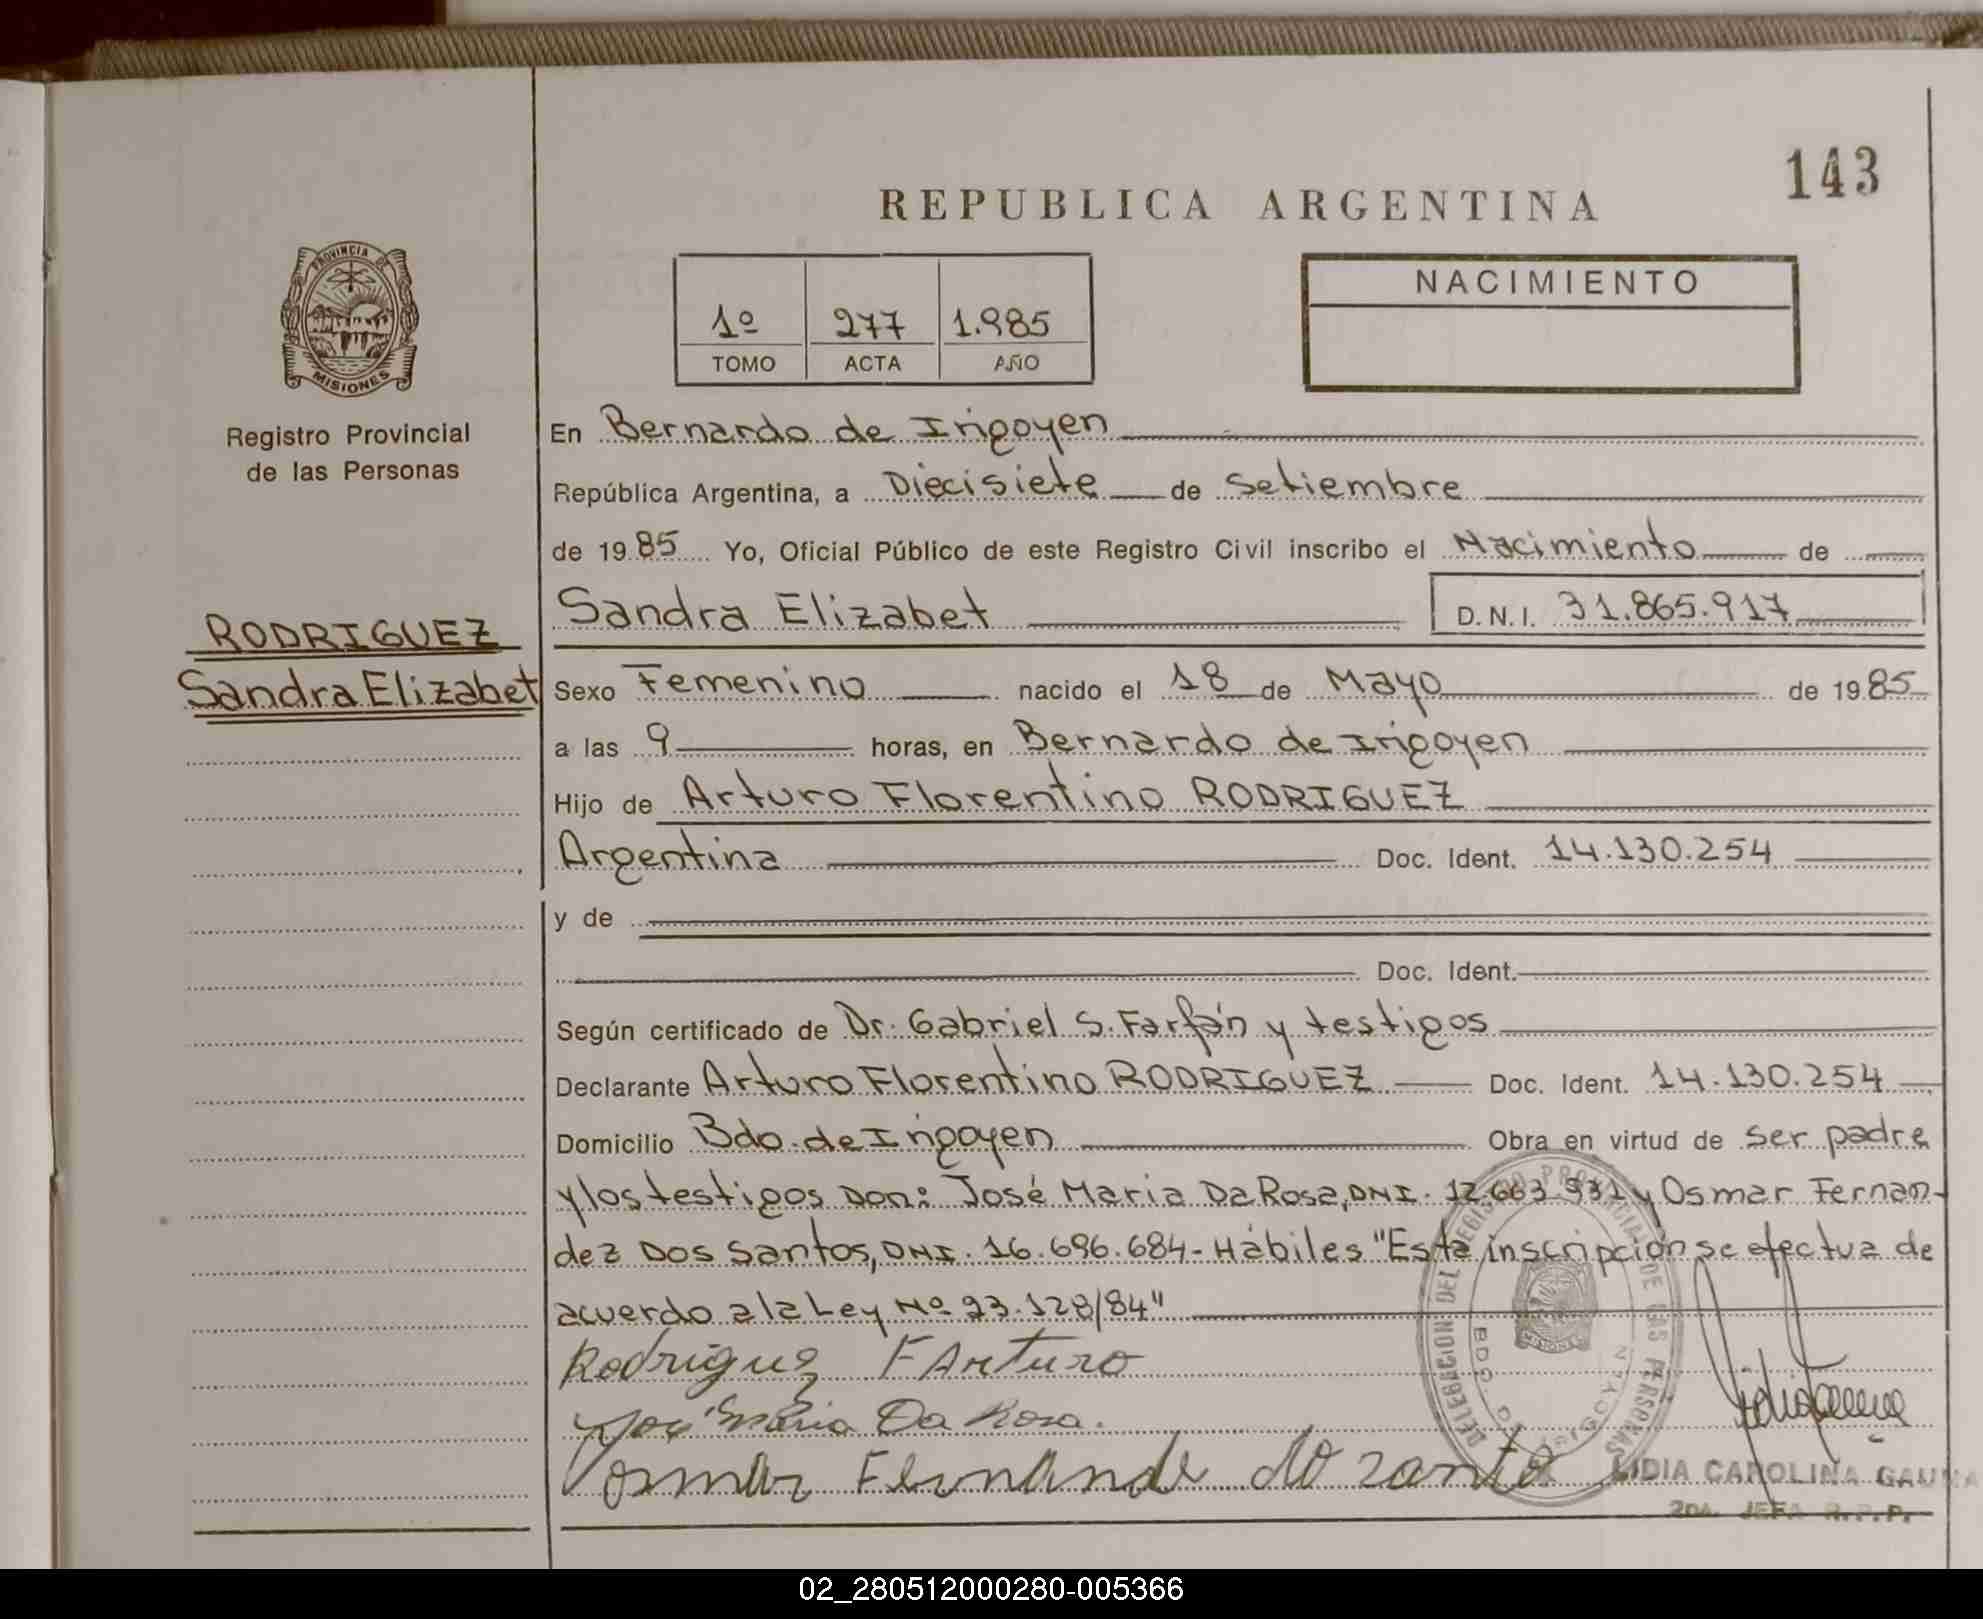 143
REPUBLICA ARGENTINA
PROVINCIA DE
MISIONES
Registro Provincial
de las Personas
1º 277 1.985
TOMO ACTA AÑO
NACIMIENTO
En Bernardo de Irigoyen
República Argentina, a Diecisiete de Setiembre
de 1985 Yo, Oficial Público de este Registro Civil inscribo el Nacimiento de
RODRIGUEZ
Sandra Elizabet
Sandra Elizabet D.N.I. 31.865.917
Sexo Femenino nacido el 18 de Mayo de 1985
a las 9 horas, en Bernardo de Irigoyen
Hijo de Arturo Florentino RODRIGUEZ
Argentina Doc. Ident. 14.130.254
y de
Doc. Ident.
Según certificado de Dr. Gabriel S. Farfán y testigos
Declarante Arturo Florentino RODRIGUEZ Doc. Ident. 14.130.254
Domicilio Bdo. de Irigoyen Obra en virtud de ser padre
y los testigos Don: José Maria Da Rosa, DNI. 12.663.931 y Osmar Fernan-
dez Dos Santos, DNI. 16.696.684- Hábiles "Esta inscripción se efectua de
acuerdo a la Ley Nº 23.128/84"
Rodriguez F Arturo
José Maria Da Rosa.
Osmar Fernande do santo
DELEGACION DEL REGISTRO PROVINCIAL DE LAS PERSONAS
BDO. DE IRIGOYEN
MISIONES
LIDIA CAROLINA GAUNA
2DA. JEFA R.P.P.
02_280512000280-005366